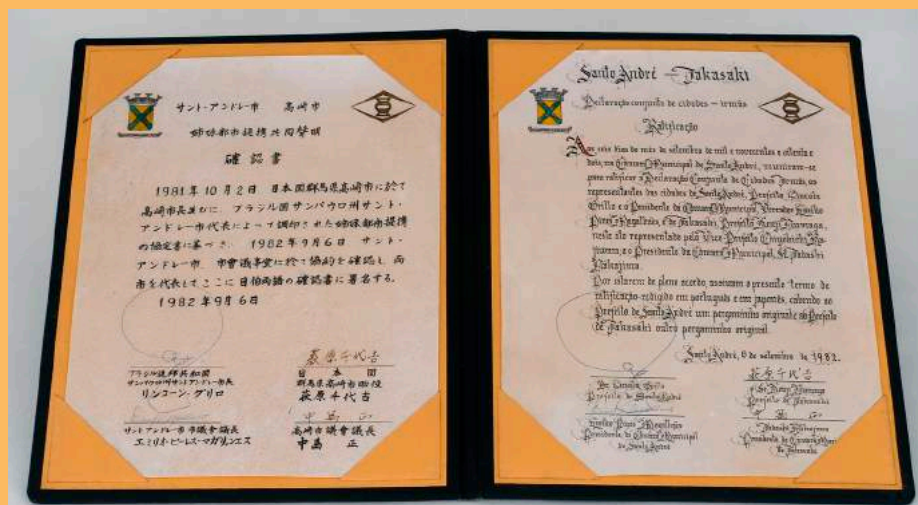 サント・アンドレー市 高崎市
姉妹都市提携共同聲明
確認書
1981年10月2日 日本国群馬県高崎市に於て
高崎市長並びに、ブラジル国サンパウロ州サント・
アンドレー市代表によって調印された姉妹都市提携
の協定書に基づき、1982年9月6日 サント・
アンドレー市、市會議事堂に於て協約を確認し、両
市を代表してここに日伯両語の確認書に署名する。
1982年9月6日
萩原千代吉
ブラジル連邦共和国
サンパウロ州サントアンドレー市長
リンコーン・グリロ
日本国
群馬県高崎市助役
萩原千代吉
中島 正
サントアンドレー市市議會議長
エミリオ・ピーレス・マガリャンエス
高崎市議會議長
中島 正
Santo André — Takasaki
Declaração conjunta de cidades — irmãs
Ratificação
Aos seis dias do mês de setembro de mil e novecentos e oitenta e
dois, na Câmara Municipal de Santo André, reuniram-se
para ratificar a Declaração Conjunta de Cidades Irmãs, os
representantes das cidades de Santo André, Prefeito Lincoln
Grillo e o Presidente da Câmara Municipal, Vereador Emílio
Pires e Magalhães, e de Takasaki, Prefeito
neste ato representado pelo Vice Prefeito
e o Presidente da Câmara Municipal, Sr. Tadashi
Nakajima.
Por estarem de pleno acordo, assinam o presente termo de
ratificação redigido em português e em japonês, cabendo ao
Prefeito de Santo André um pergaminho original e ao Prefeito
de Takasaki outro pergaminho original.
Santo André, 6 de setembro de 1982.
萩原千代吉
Prefeito de Santo André
Prefeito de Takasaki
中島 正
Presidente da Câmara Municipal
de Santo André
Tadashi Nakajima
Presidente da Câmara
de Takasaki